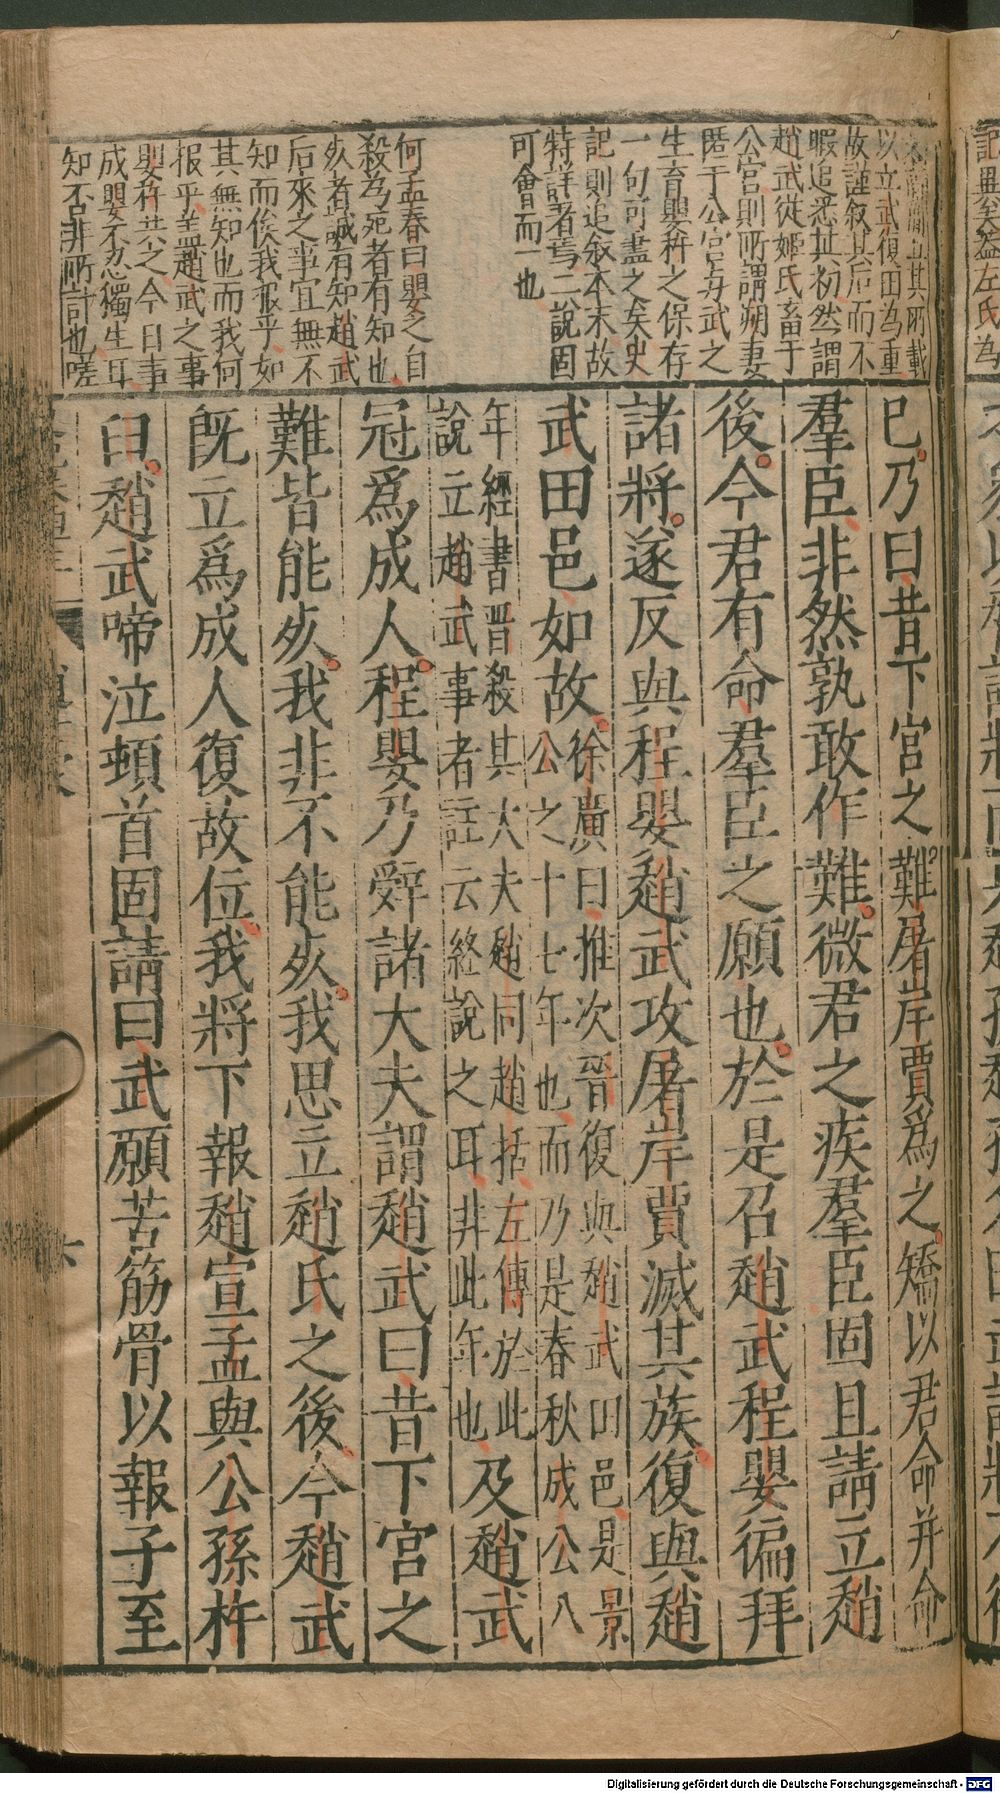 以立武復田為重
故謹叙其后而不
暇追悉其初然謂
趙武從姬氏畜于
公宮則所謂朔妻
匿于公宮与武之
生育嬰杵之保存
一句可盡之矣史
記則追叙本末故
特詳著焉二說固
可會而一也
何孟春曰嬰之自
殺為死者有知也
死者誠有知趙武
后來之事宜無不
知而俟我报乎如
其無知也而我何
报乎盖趙武之事
嬰杵共之今日事
成嬰不忍獨生耳
知不否非所計也嗟
已乃曰昔下宮之難屠岸賈為之矯以君命并命
羣臣非然孰敢作難微君之疾羣臣固且請立趙
後今君有命羣臣之願也於是召趙武程嬰徧拜
諸將遂反與程嬰趙武攻屠岸賈滅其族復與趙
武田邑如故徐廣曰推次晉復與趙武田邑是景
公之十七年也而乃是春秋成公八
年經書晋殺其大夫趙同趙括左傳於此
說立趙武事者註云終說之耳非此年也及趙武
冠爲成人程嬰乃辭諸大夫謂趙武曰昔下宮之
難皆能死我非不能死我思立趙氏之後今趙武
既立爲成人復故位我將下報趙宣孟與公孫杵
臼趙武啼泣頓首固請曰武願苦筋骨以報子至
六
Digitalisierung gefördert durch die Deutsche Forschungsgemeinschaft - DFG